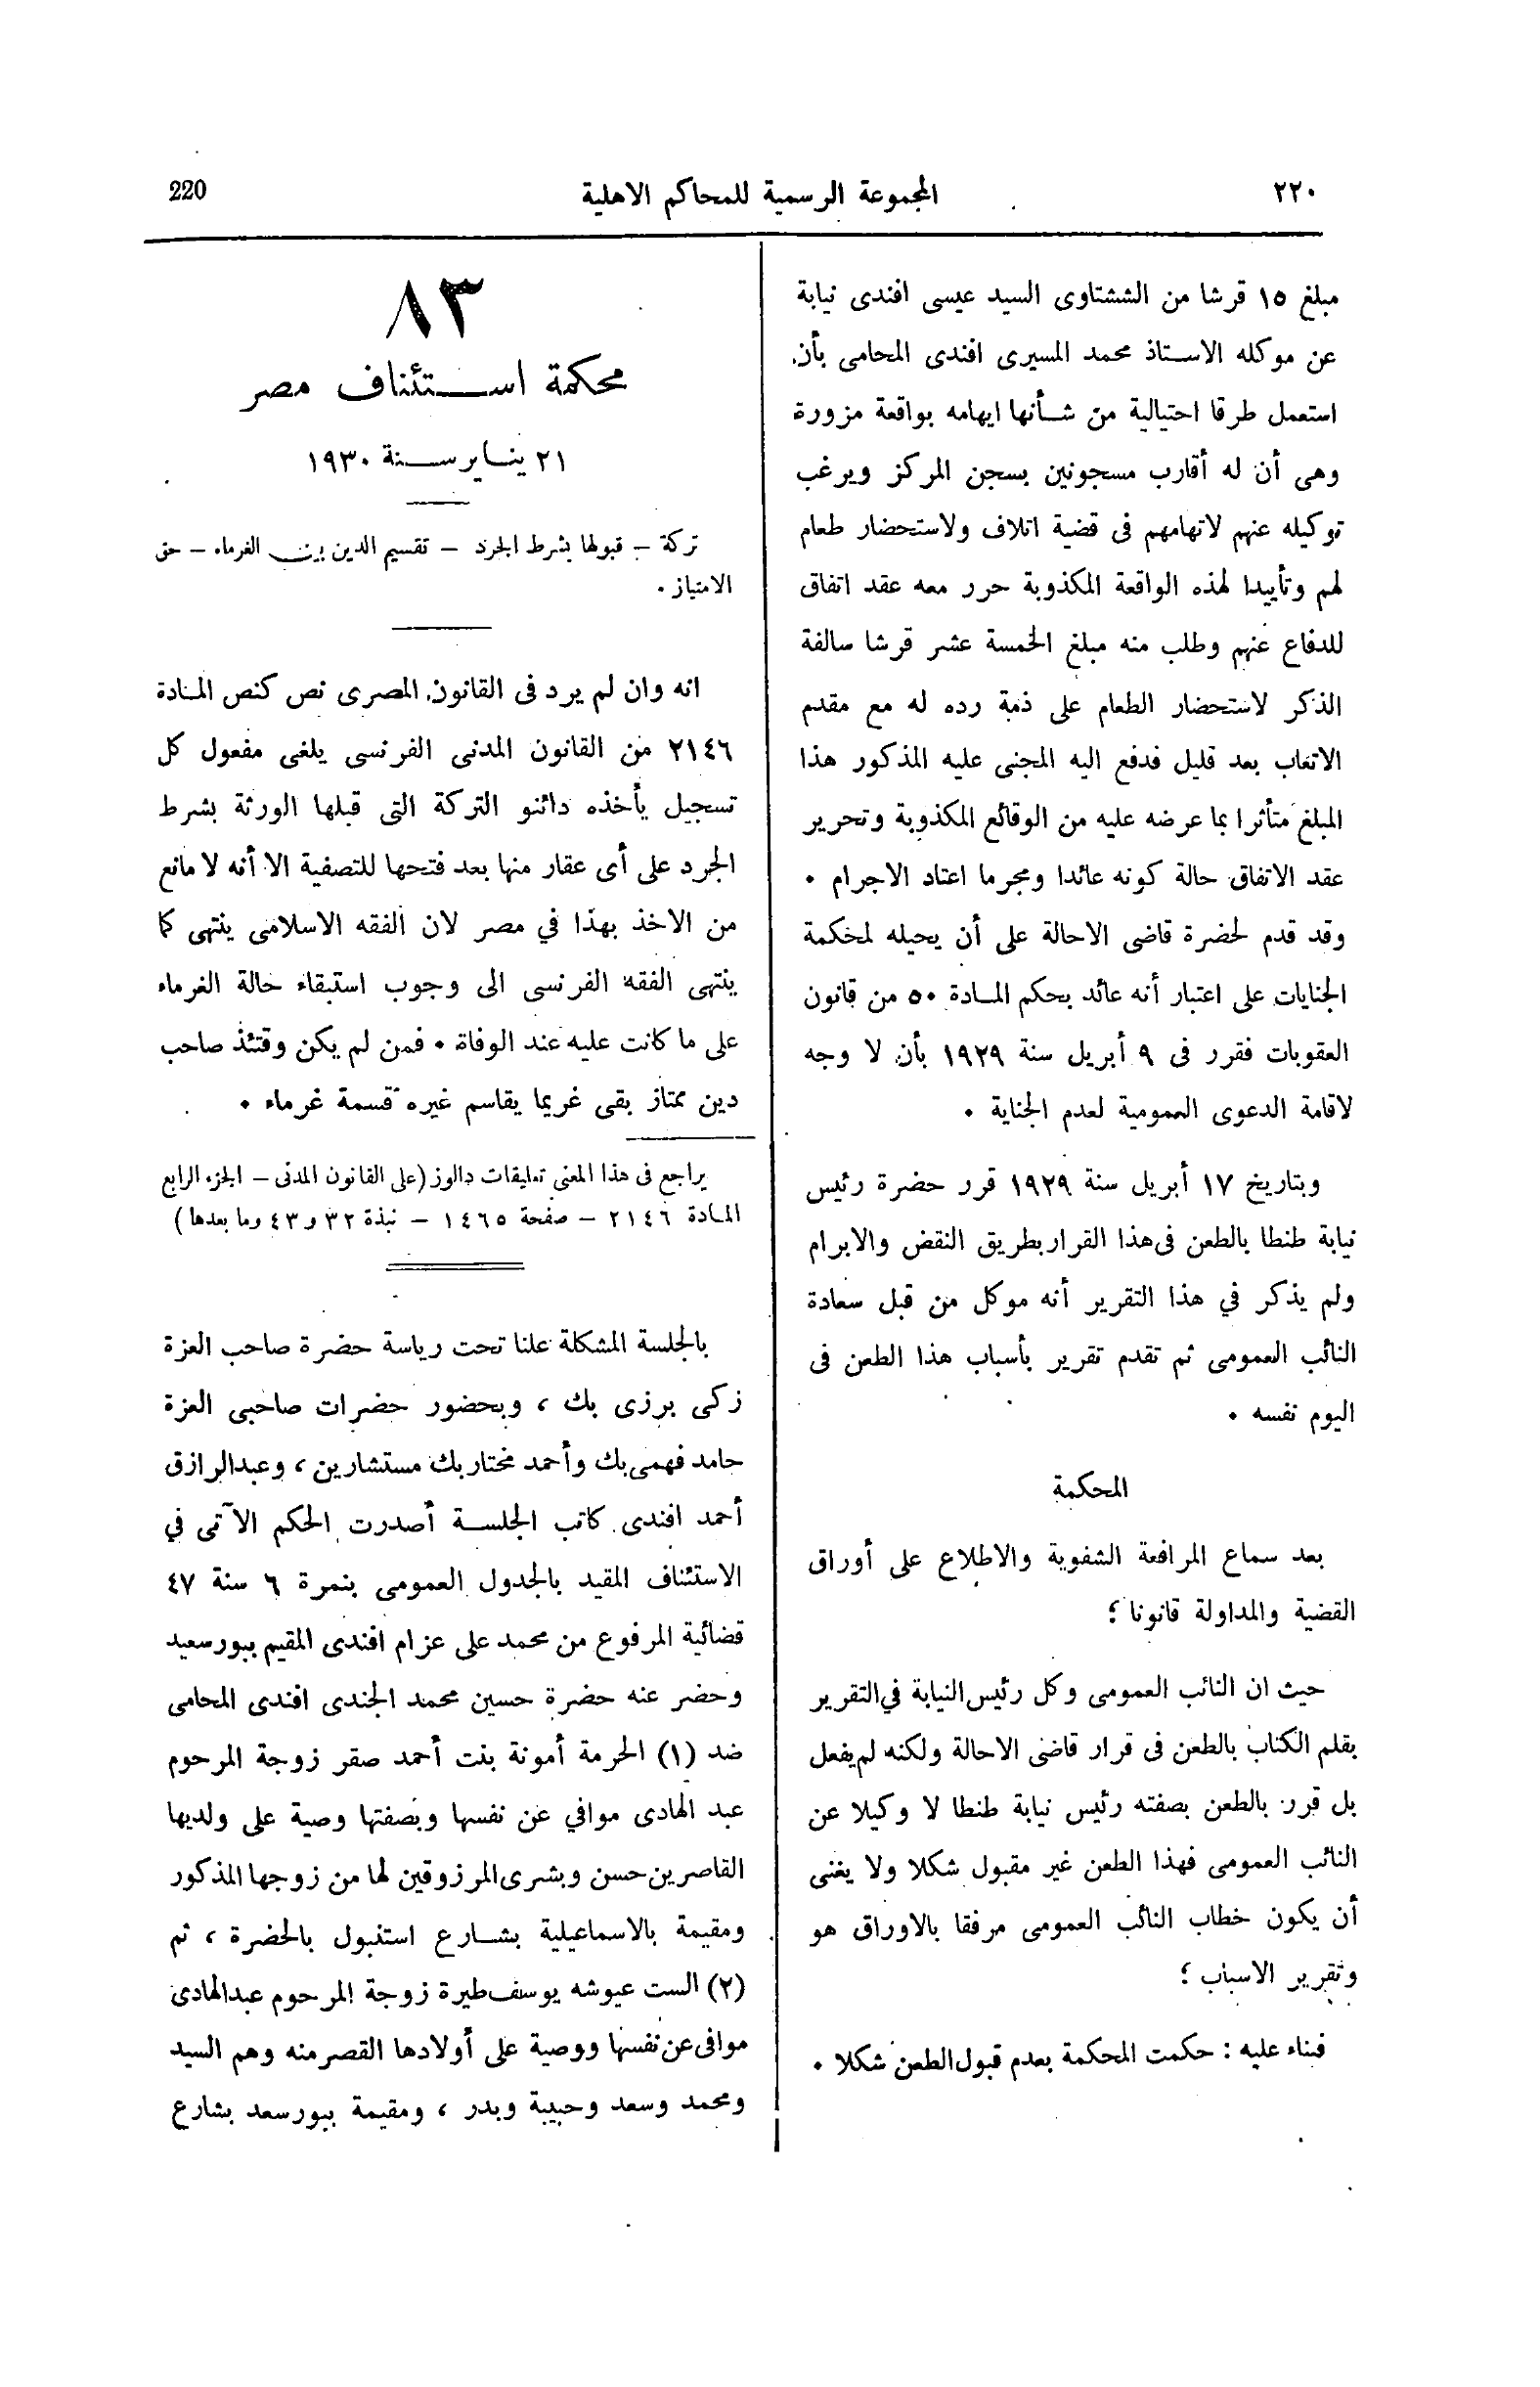 ٢٢٠ المجموعة الرسمية للمحاكم الاهلية 220
مبلغ ١٥ قرشا من الششتاوى السيد عيسى افندى نيابة
عن موكله الاستاذ محمد المسيرى افندى المحامى بأن
استعمل طرقا احتيالية من شأنها ايهامه بواقعة مزورة
وهى أن له أقارب مسجونين بسجن المركز ويرغب
توكيله عنهم لاتهامهم فى قضية اتلاف ولاستحضار طعام
لهم وتأييدا لهذه الواقعة المكذوبة حرر معه عقد اتفاق
للدفاع عنهم وطلب منه مبلغ الخمسة عشر قرشا سالفة
الذكر لاستحضار الطعام على ذمة رده له مع مقدم
الاتعاب بعد قليل فدفع اليه المجنى عليه المذكور هذا
المبلغ متأثرا بما عرضه عليه من الوقائع المكذوبة وتحرير
عقد الاتفاق حالة كونه عائدا ومجرما اعتاد الاجرام .
وقد قدم لحضرة قاضى الاحالة على أن يحيله لمحكمة
الجنايات على اعتبار أنه عائد بحكم المادة ٥٠ من قانون
العقوبات فقرر فى ٩ أبريل سنة ١٩٢٩ بأن لا وجه
لاقامة الدعوى العمومية لعدم الجناية .
وبتاريخ ١٧ أبريل سنة ١٩٢٩ قرر حضرة رئيس
نيابة طنطا بالطعن فى هذا القرار بطريق النقض والابرام
ولم يذكر في هذا التقرير أنه موكل من قبل سعادة
النائب العمومى ثم تقدم تقرير بأسباب هذا الطعن فى
اليوم نفسه .
المحكمة
بعد سماع المرافعة الشفوية والاطلاع على أوراق
القضية والمداولة قانونا ؛
حيث ان النائب العمومى وكل رئيس النيابة في التقرير
بقلم الكتاب بالطعن فى قرار قاضى الاحالة ولكنه لم يفعل
بل قرر بالطعن بصفته رئيس نيابة طنطا لا وكيلا عن
النائب العمومى فهذا الطعن غير مقبول شكلا ولا يغنى
أن يكون خطاب النائب العمومى مرفقا بالاوراق هو
وتقرير الاسباب ؛
فبناء عليه : حكمت المحكمة بعدم قبول الطعن شكلا .
٨٣
محكمة استئناف مصر
٢١ يناير سنة ١٩٣٠
تركة – قبولها بشرط الجرد – تقسيم الدين بين الغرماء – حق
الامتياز .
انه وان لم يرد فى القانون المصرى نص كنص المادة
٢١٤٦ من القانون المدنى الفرنسى يلغى مفعول كل
تسجيل يأخذه دائنو التركة التى قبلها الورثة بشرط
الجرد على أى عقار منها بعد فتحها للتصفية الا أنه لا مانع
من الاخذ بهذا في مصر لان الفقه الاسلامى ينتهى كما
ينتهى الفقه الفرنسى الى وجوب استبقاء حالة الغرماء
على ما كانت عليه عند الوفاة . فمن لم يكن وقتئذ صاحب
دين ممتاز بقى غريما يقاسم غيره قسمة غرماء .
يراجع فى هذا المعنى تعليقات دالوز (على القانون المدنى – الجزء الرابع
المادة ٢١٤٦ – صفحة ١٤٦٥ – نبذة ٣٢ و ٤٣ وما بعدها)
بالجلسة المشكلة علنا تحت رياسة حضرة صاحب العزة
زكى برزى بك ، وبحضور حضرات صاحبى العزة
حامد فهمى بك وأحمد مختار بك مستشارين ، وعبد الرازق
أحمد افندى كاتب الجلسة أصدرت الحكم الآتى في
الاستئناف المقيد بالجدول العمومى بنمرة ٦ سنة ٤٧
قضائية المرفوع من محمد على عزام افندى المقيم ببور سعيد
وحضر عنه حضرة حسين محمد الجندى افندى المحامى
ضد (١) الحرمة أمونة بنت أحمد صقر زوجة المرحوم
عبد الهادى موافي عن نفسها وبصفتها وصية على ولديها
القاصرين حسن وبشرى المرزوقين لها من زوجها المذكور
ومقيمة بالاسماعيلية بشارع استنبول بالحضرة ، ثم
(٢) الست عيوشه يوسف طيرة زوجة المرحوم عبد الهادى
موافى عن نفسها ووصية على أولادها القصر منه وهم السيد
ومحمد وسعد وحبيبة وبدر ، ومقيمة ببور سعد بشارع